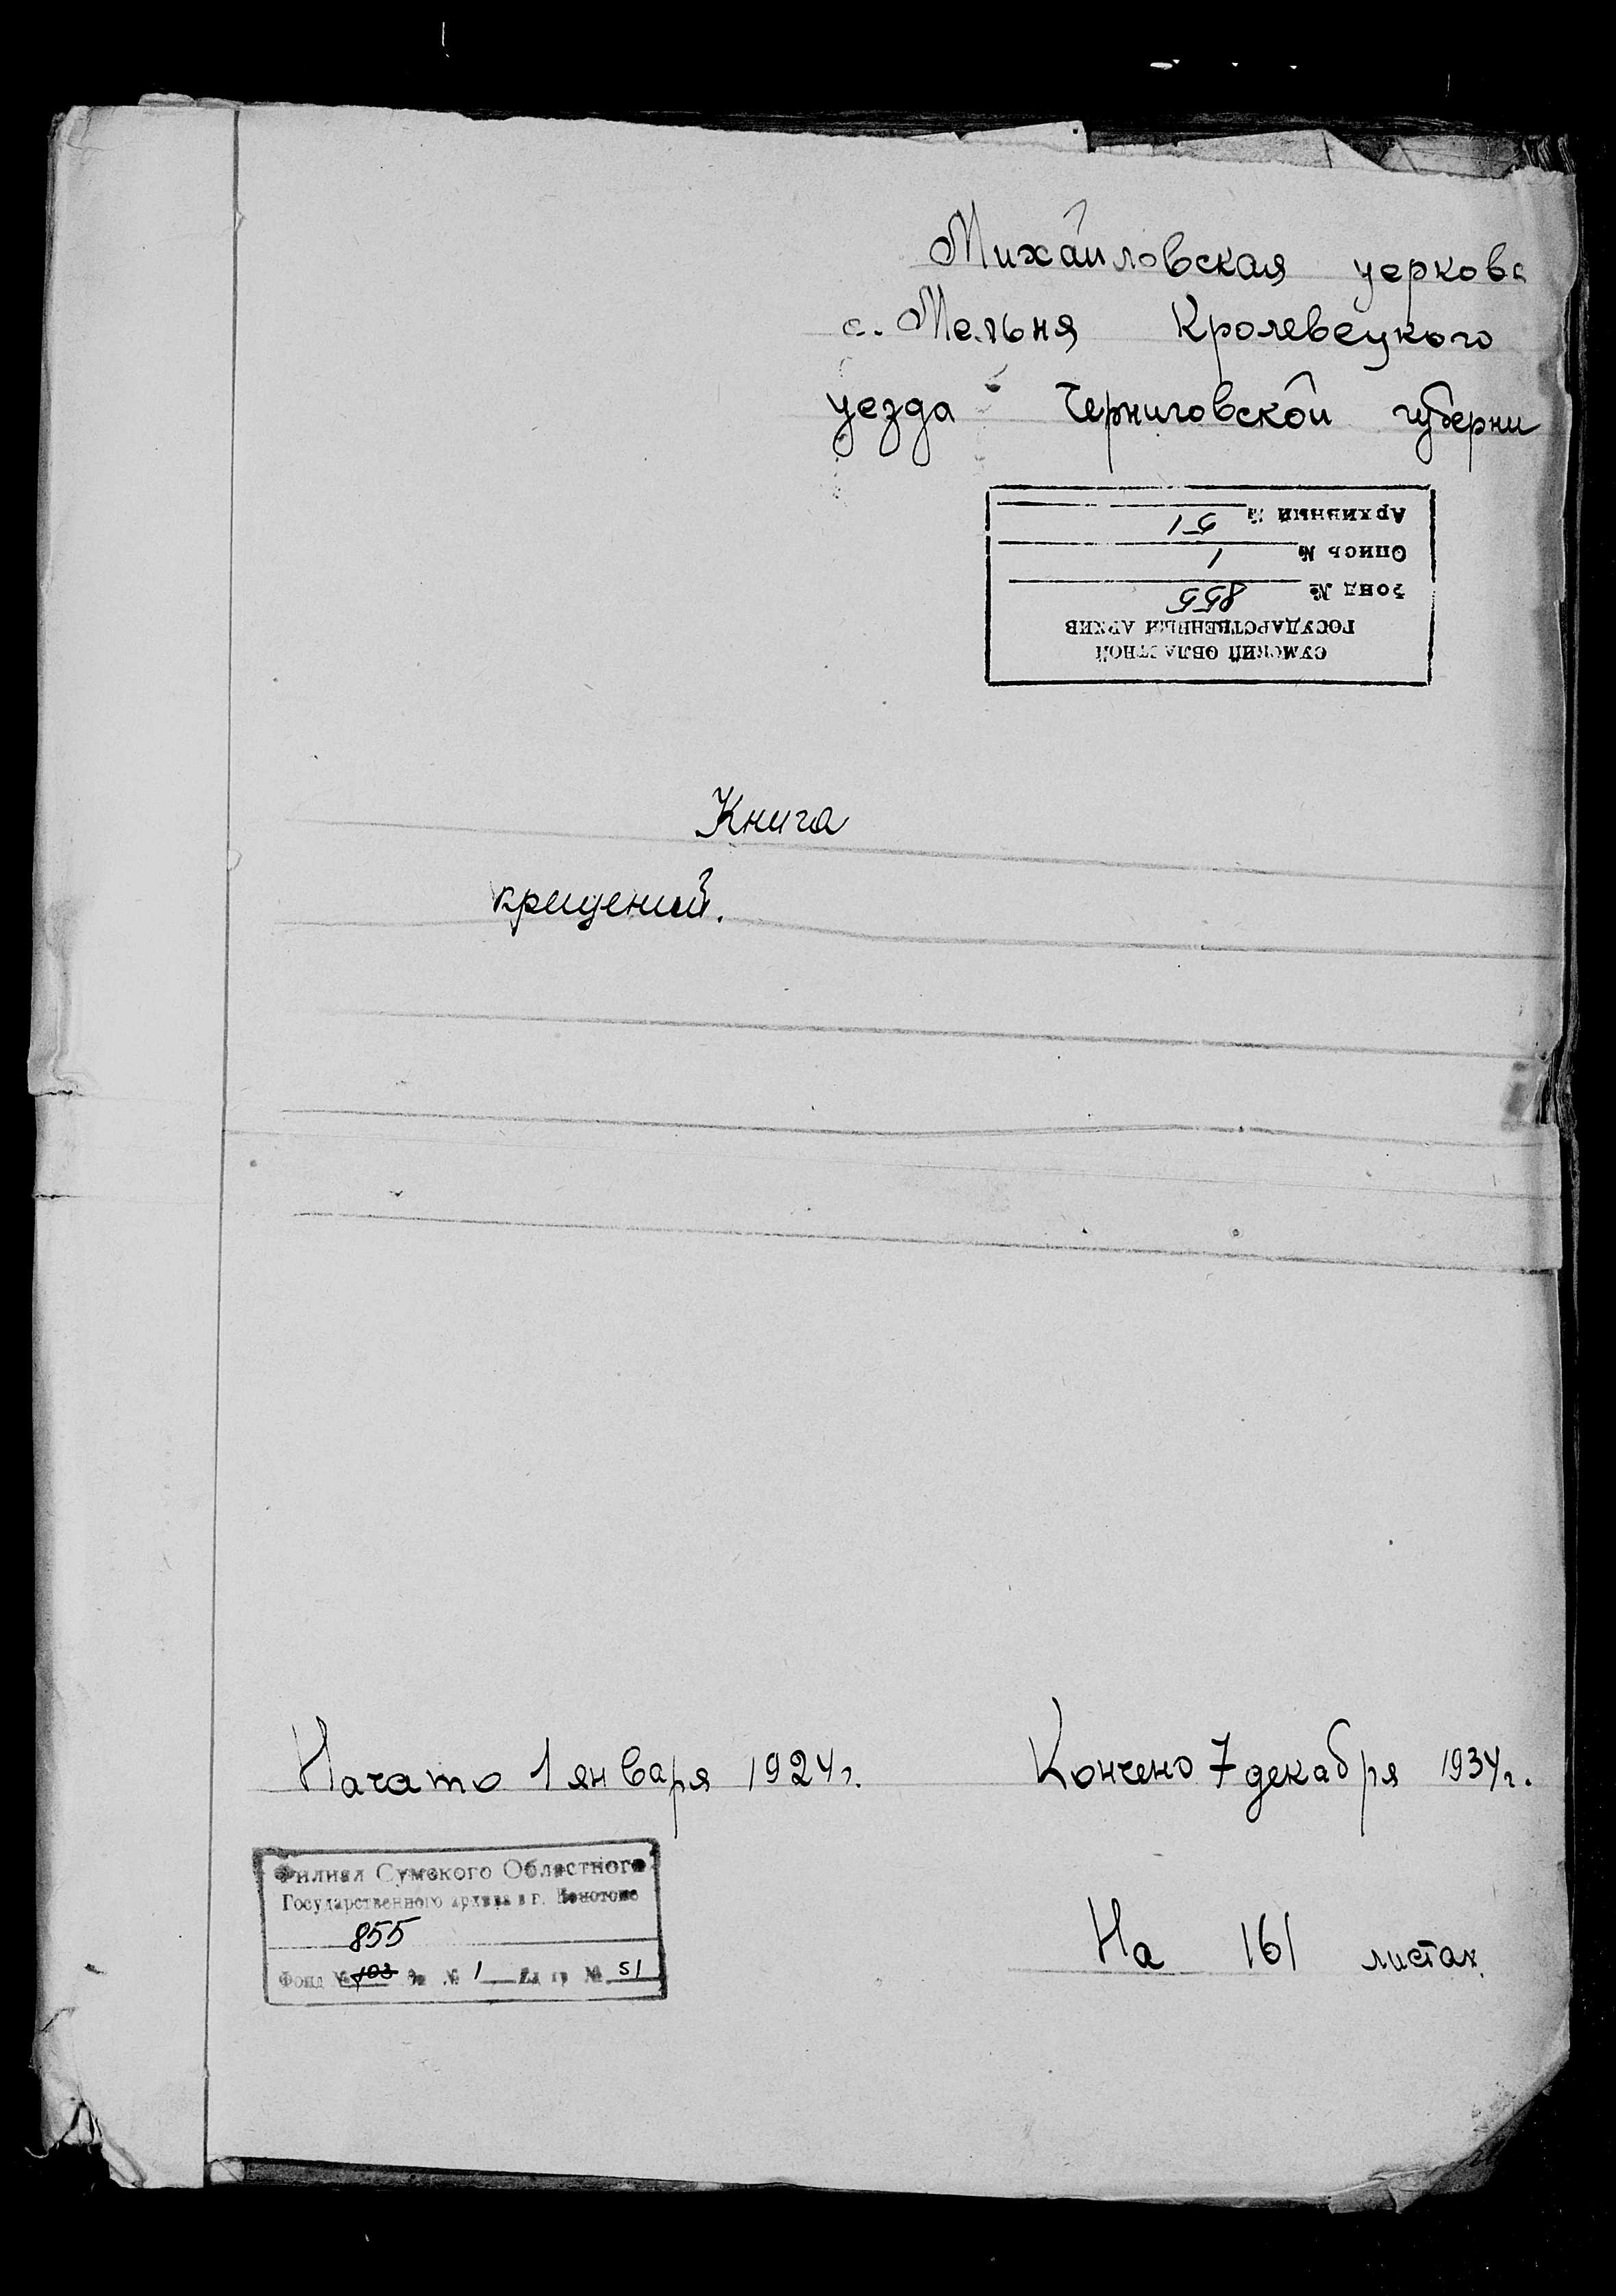 Михайловская церковь
с. Мельня Кролевецкого
уезда Черниговской губерни
СУМСКИЙ ОБЛАСТНОЙ
ГОСУДАРСТВЕННЫЙ АРХИВ
Фонд № 855
Опись № 1
Архивный № 51
Книга
крещений.
Начато 1 января 1924 г.
Кончено 7 декабря 1934 г.
Филиал Сумского Областного
Государственного архива в г. Конотопе
855
Фонд № 103 Оп № 1 Ед хр № 51
На 161 листах.